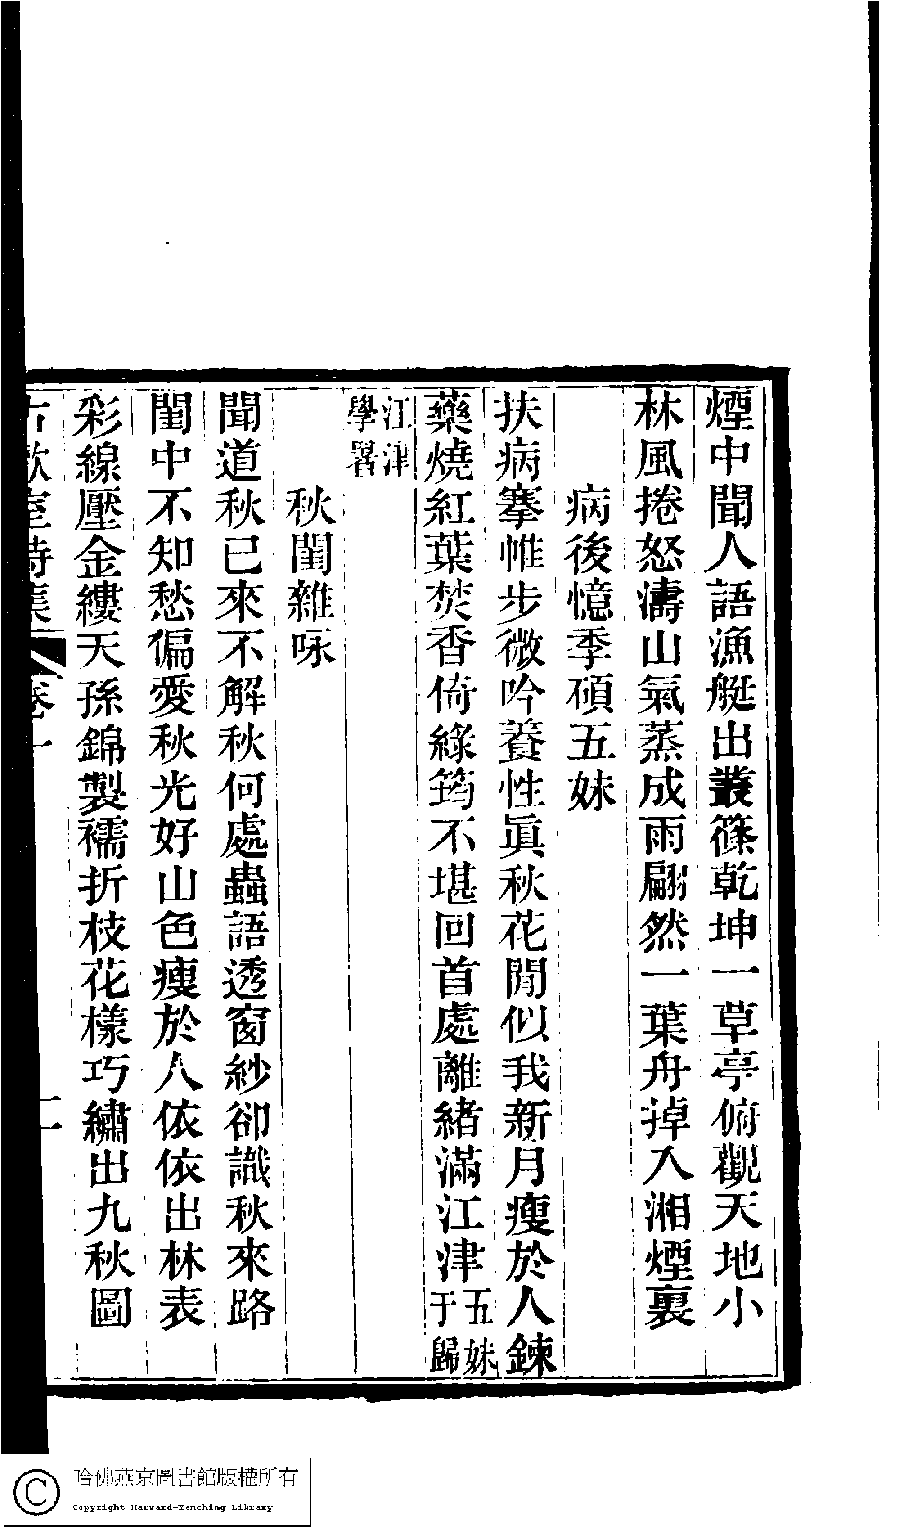 煙中聞人語漁艇出叢篠乾坤一草亭俯觀天地小
林風捲怒濤山氣蒸成雨翩然一葉舟掉入湘煙裏
病後憶季碩五妹
扶病搴帷步微吟養性眞秋花閒似我新月瘦於人鍊
藥燒紅葉焚香倚綠筠不堪回首處離緒滿江津五妹于歸
江津學署
秋閨雜咏
聞道秋已來不解秋何處蟲語透窗紗卻識秋來路
閨中不知愁偏愛秋光好山色瘦於人依依出林表
彩線壓金縷天孫錦製襦折枝花樣巧繡出九秋圖
古歡室詩集 卷一 十一
哈佛燕京圖書館版權所有
Copyright Harvard-Yenching Library